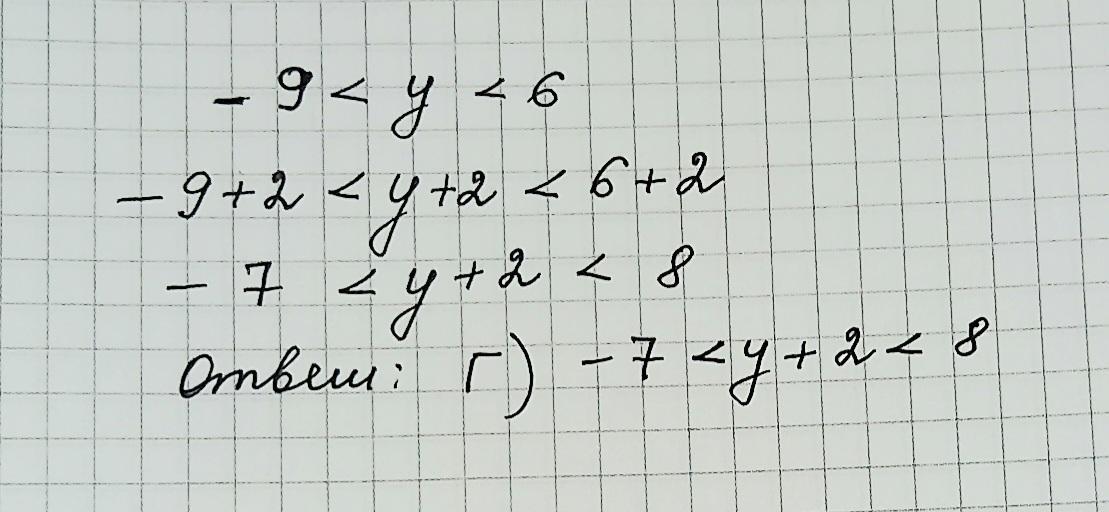 - 9 < y < 6
- 9 + 2 < y + 2 < 6 + 2
- 7 < y + 2 < 8
Ответ: Г) - 7 < y + 2 < 8